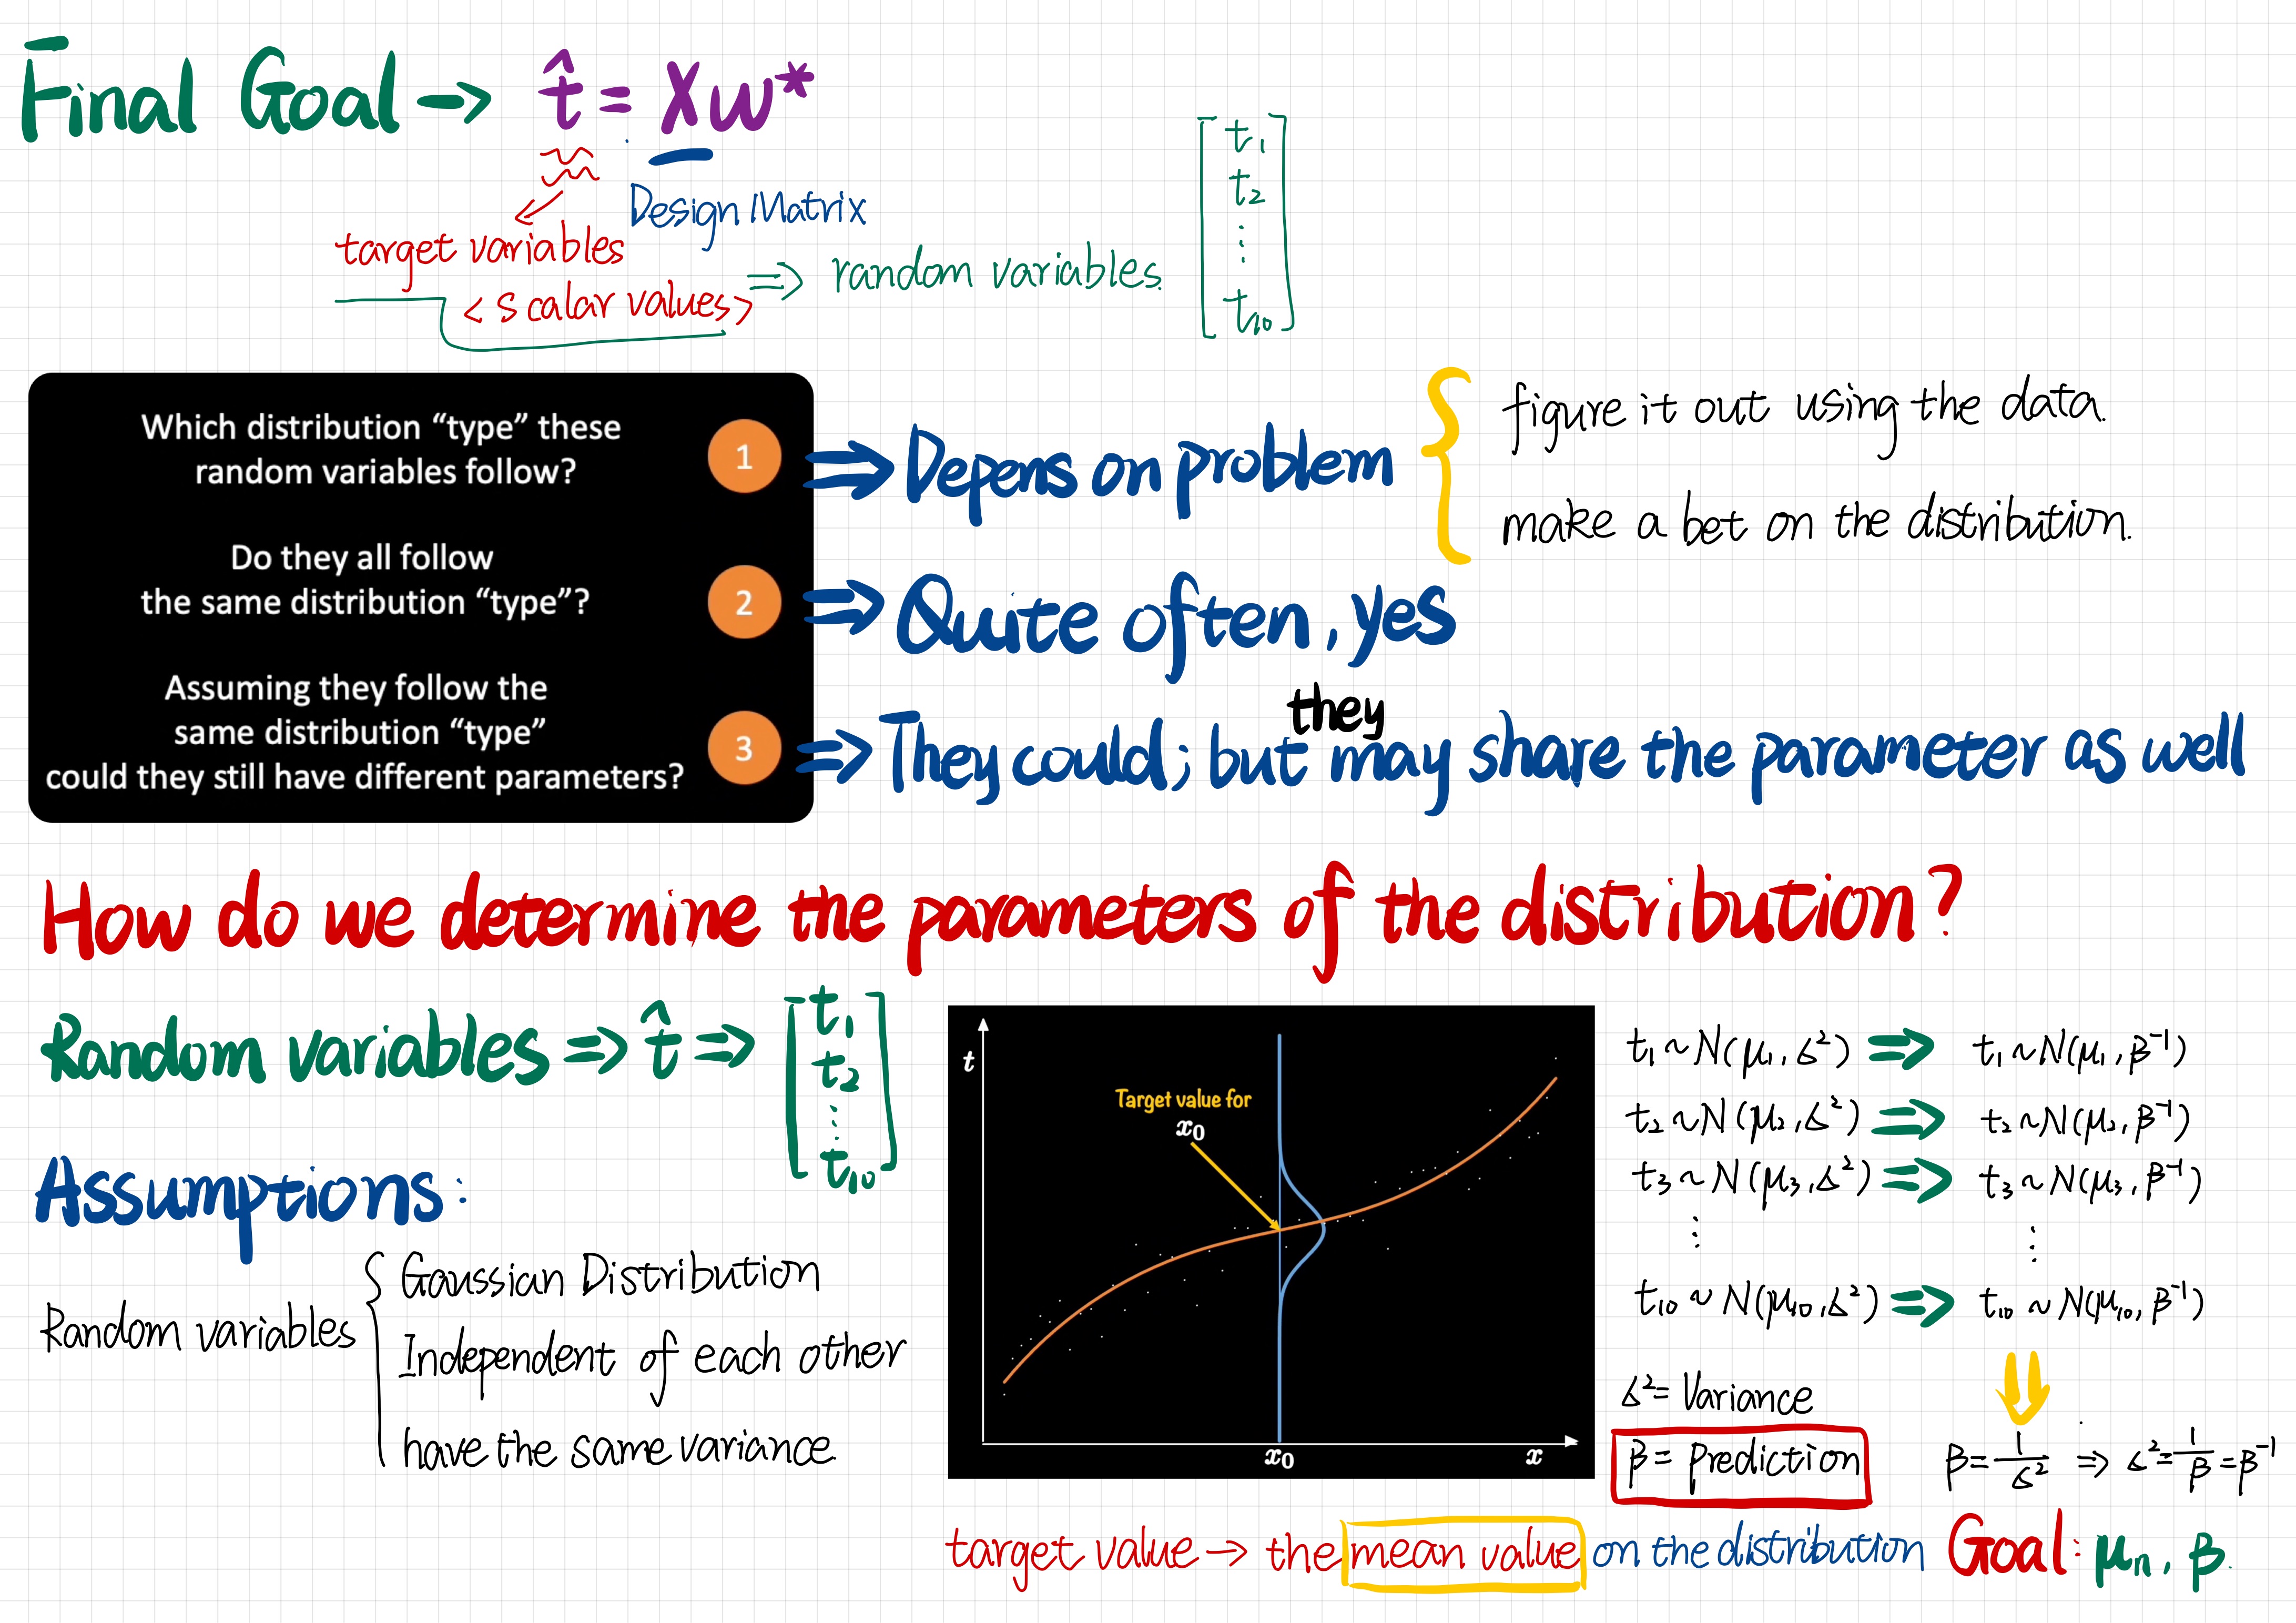 Final Goal → t̂ = Xw*
Design Matrix
target variables
<scalar values> ⇒ random variables.
t₁
t₂
⋮
t₁₀
Which distribution “type” these
random variables follow?
1
⇒ Depens on problem
figure it out using the data.
make a bet on the distribution.
Do they all follow
the same distribution “type”?
2
⇒ Quite often, yes
Assuming they follow the
same distribution “type”
could they still have different parameters?
3
they
⇒ They could; but may share the parameter as well
How do we determine the parameters of the distribution?
Random variables ⇒ t̂ ⇒
t₁
t₂
⋮
t₁₀
Assumptions:
Random variables
Gaussian Distribution
Independent of each other
have the same variance
t
Target value for
x₀
x₀
x
t₁ ~ N(μ₁, σ²) ⇒ t₁ ~ N(μ₁, β⁻¹)
t₂ ~ N(μ₂, σ²) ⇒ t₂ ~ N(μ₂, β⁻¹)
t₃ ~ N(μ₃, σ²) ⇒ t₃ ~ N(μ₃, β⁻¹)
⋮ ⋮
t₁₀ ~ N(μ₁₀, σ²) ⇒ t₁₀ ~ N(μ₁₀, β⁻¹)
σ² = Variance
β = Prediction
β = 1/σ² ⇒ σ² = 1/β = β⁻¹
target value → the mean value on the distribution
Goal: μₙ, β.